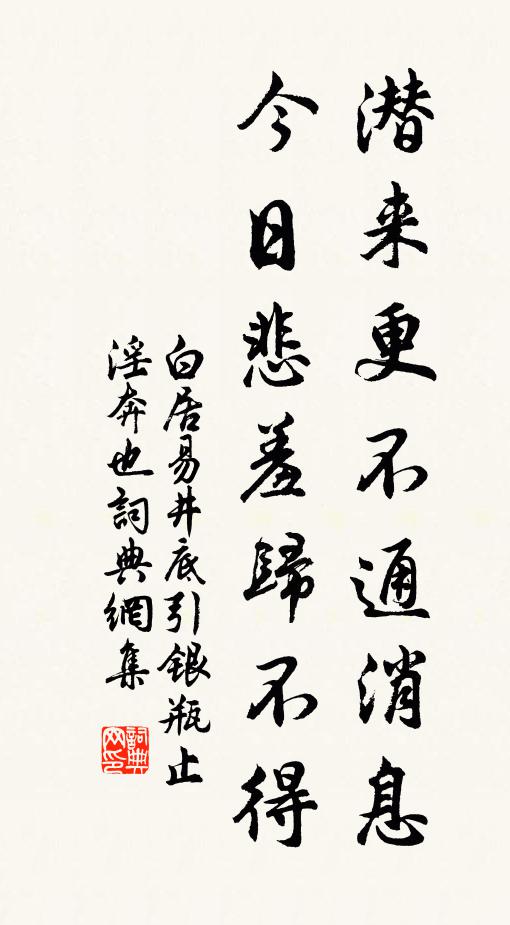 潜来更不通消息
今日悲羞歸不得
白居易井底引银瓶止
淫奔也詞典網集
詞典网印